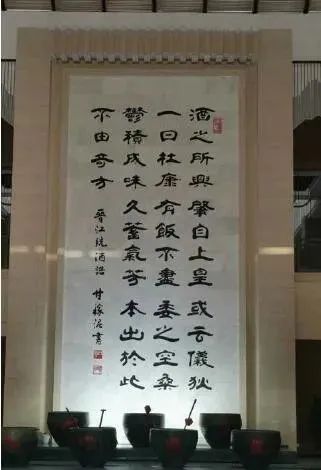 酒之所興肇自上皇或云儀狄
一曰杜康有飯不盡委之空桑
鬱積成味久蓄氣芳本出於此
不由奇方
晉江統酒誥 書